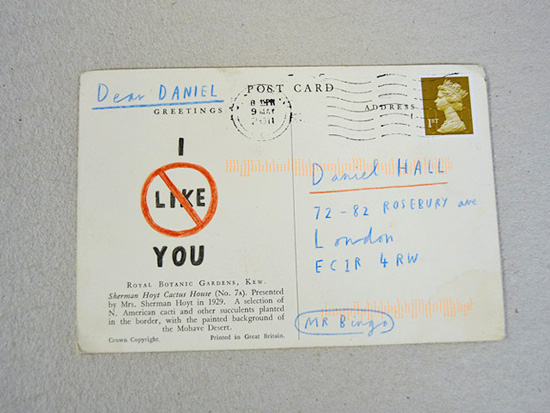 Dear DANIEL
POST CARD
GREETINGS
ADDRESS
1ST
I
LIKE
YOU
Daniel HALL
72-82 ROSEBURY ave
London
EC1R 4RW
ROYAL BOTANIC GARDENS, KEW.
Sherman Hoyt Cactus House (No. 7A). Presented
by Mrs. Sherman Hoyt in 1929. A selection of
N. American cacti and other succulents planted
in the border, with the painted background of
the Mohave Desert.
Crown Copyright. Printed in Great Britain.
MR Bingo